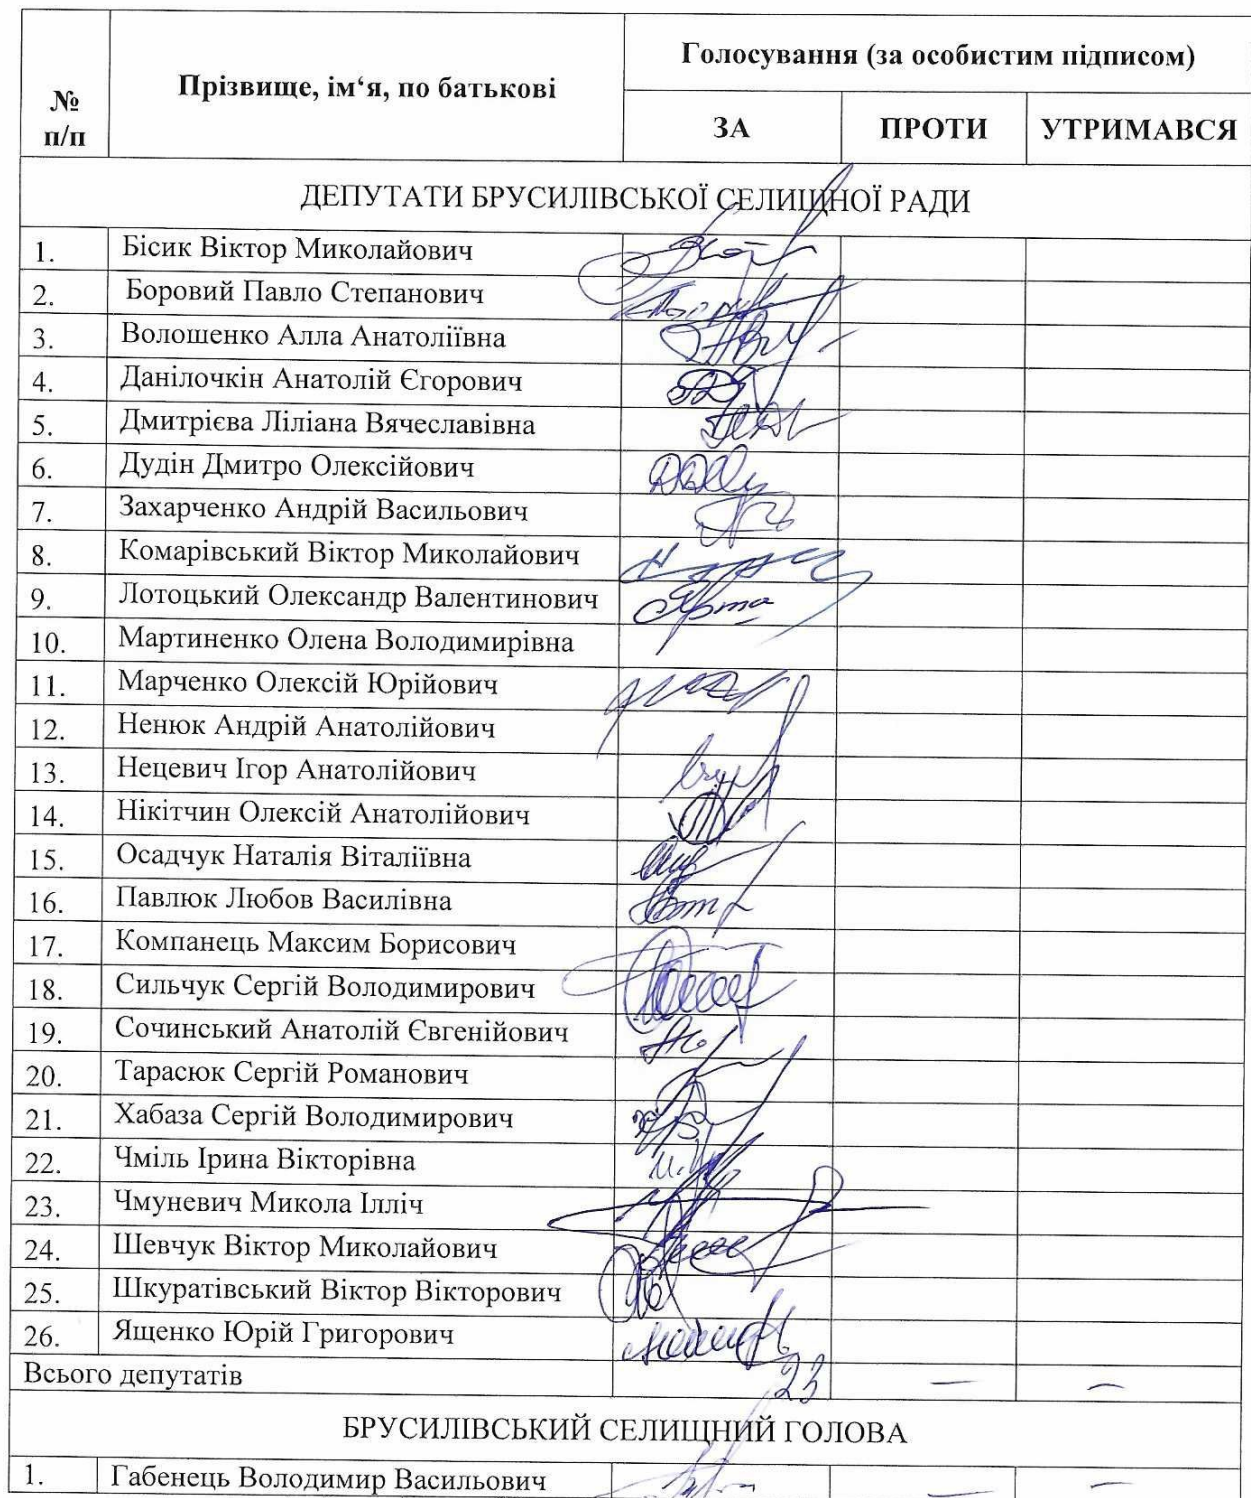 № п/п
Прізвище, ім‘я, по батькові
Голосування (за особистим підписом)
ЗА ПРОТИ УТРИМАВСЯ
ДЕПУТАТИ БРУСИЛІВСЬКОЇ СЕЛИЩНОЇ РАДИ
1. Бісик Віктор Миколайович
2. Боровий Павло Степанович
3. Волошенко Алла Анатоліївна
4. Данілочкін Анатолій Єгорович
5. Дмитрієва Ліліана Вячеславівна
6. Дудін Дмитро Олексійович
7. Захарченко Андрій Васильович
8. Комарівський Віктор Миколайович
9. Лотоцький Олександр Валентинович
10. Мартиненко Олена Володимирівна
11. Марченко Олексій Юрійович
12. Ненюк Андрій Анатолійович
13. Нецевич Ігор Анатолійович
14. Нікітчин Олексій Анатолійович
15. Осадчук Наталія Віталіївна
16. Павлюк Любов Василівна
17. Компанець Максим Борисович
18. Сильчук Сергій Володимирович
19. Сочинський Анатолій Євгенійович
20. Тарасюк Сергій Романович
21. Хабаза Сергій Володимирович
22. Чміль Ірина Вікторівна
23. Чмуневич Микола Ілліч
24. Шевчук Віктор Миколайович
25. Шкуратівський Віктор Вікторович
26. Ященко Юрій Григорович
Всього депутатів 23 — —
БРУСИЛІВСЬКИЙ СЕЛИЩНИЙ ГОЛОВА
1. Габенець Володимир Васильович — —